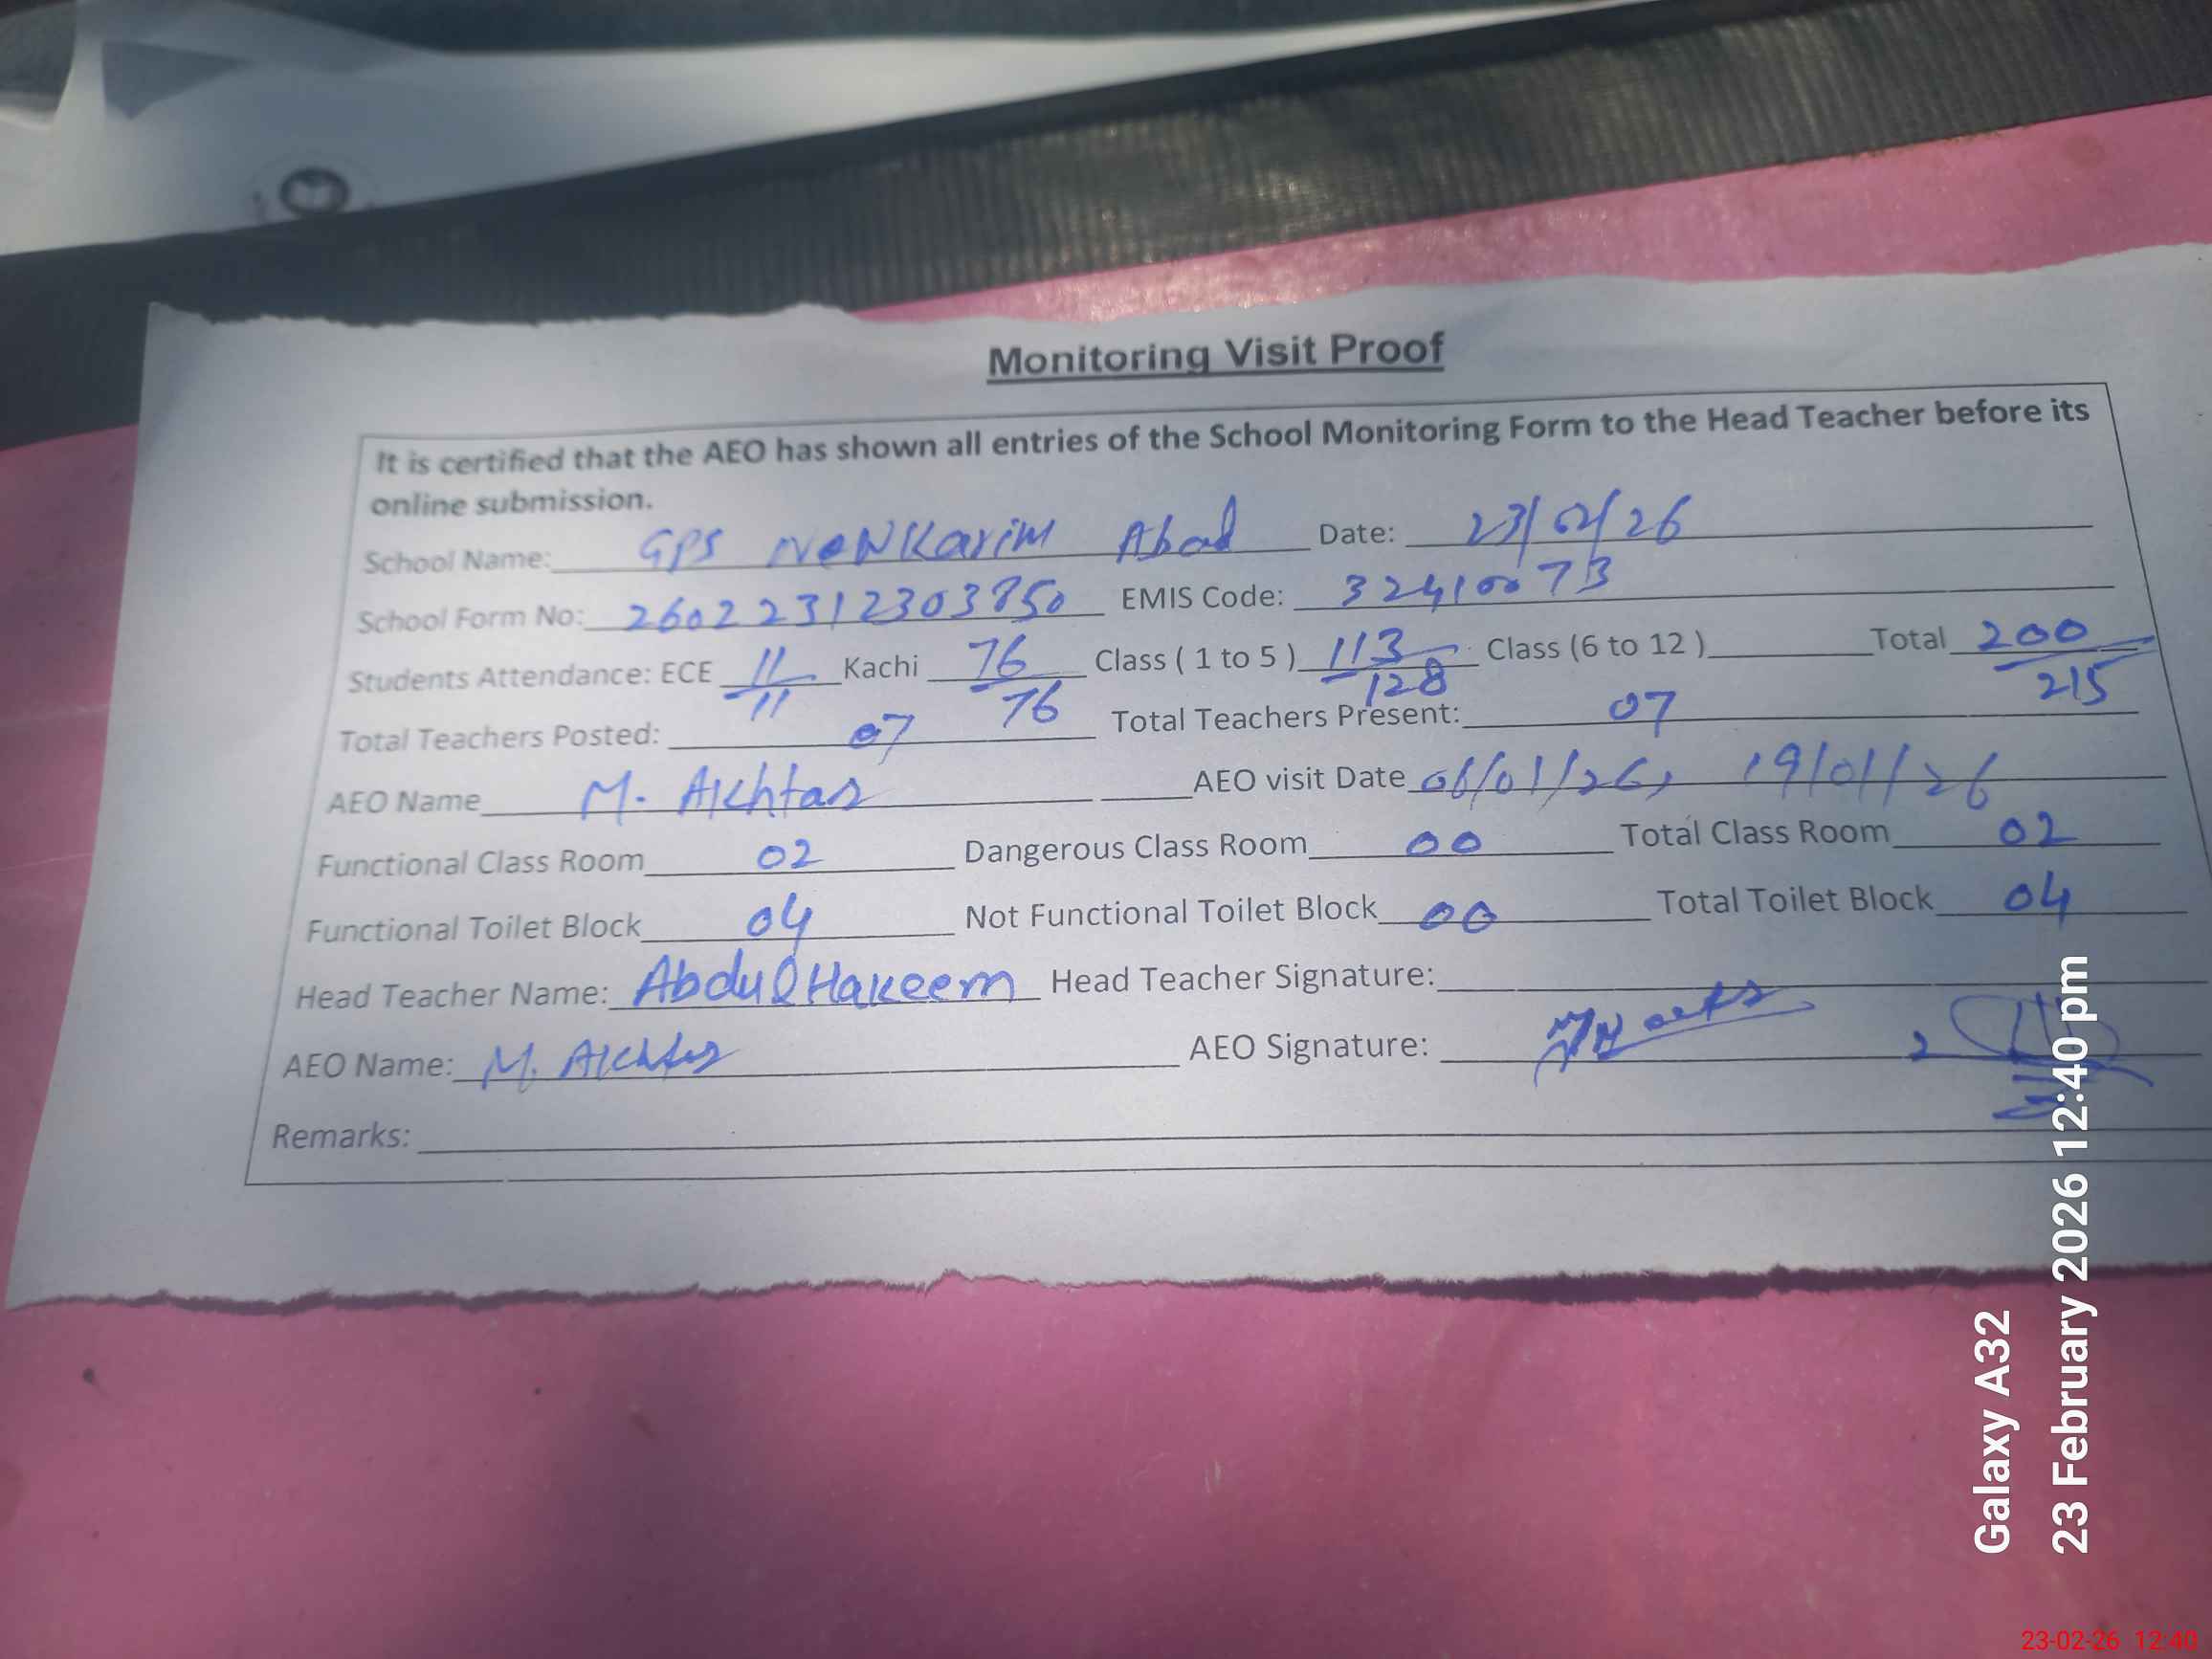 Monitoring Visit Proof
It is certified that the AEO has shown all entries of the School Monitoring Form to the Head Teacher before its
online submission.
School Name: GPS NeNKarim Abad Date: 23/02/26
School Form No: 26022312303850 EMIS Code: 32410073
Students Attendance: ECE 11/11 Kachi 76/76 Class ( 1 to 5 ) 113/128 Class (6 to 12 ) Total 200/215
Total Teachers Posted: 07 Total Teachers Present: 07
AEO Name M. Akhtar AEO visit Date 06/01/26, 19/01/26
Functional Class Room 02 Dangerous Class Room 00 Total Class Room 02
Functional Toilet Block 04 Not Functional Toilet Block 00 Total Toilet Block 04
Head Teacher Name: Abdul Hakeem Head Teacher Signature:
AEO Name: M. Akhtar AEO Signature:
Remarks:
Galaxy A32
23 February 2026 12:40 pm
23-02-26 12:40